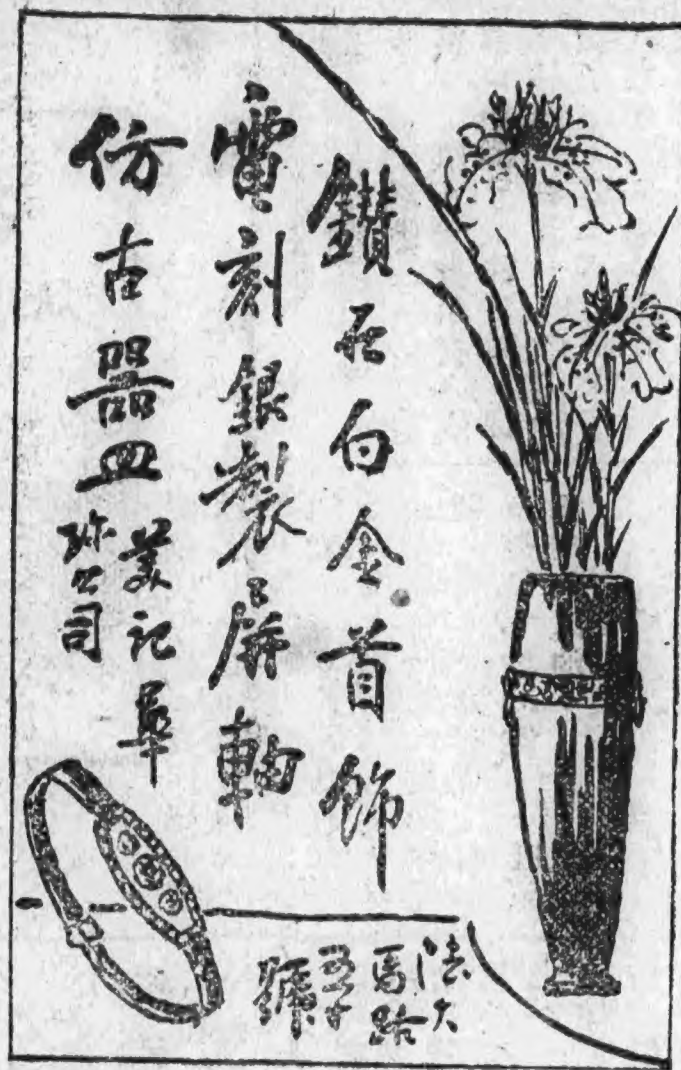 鑽石白金首飾
雷刻銀製屏軸
仿古器皿
美記華
珎公司
法大
馬路
五十
號